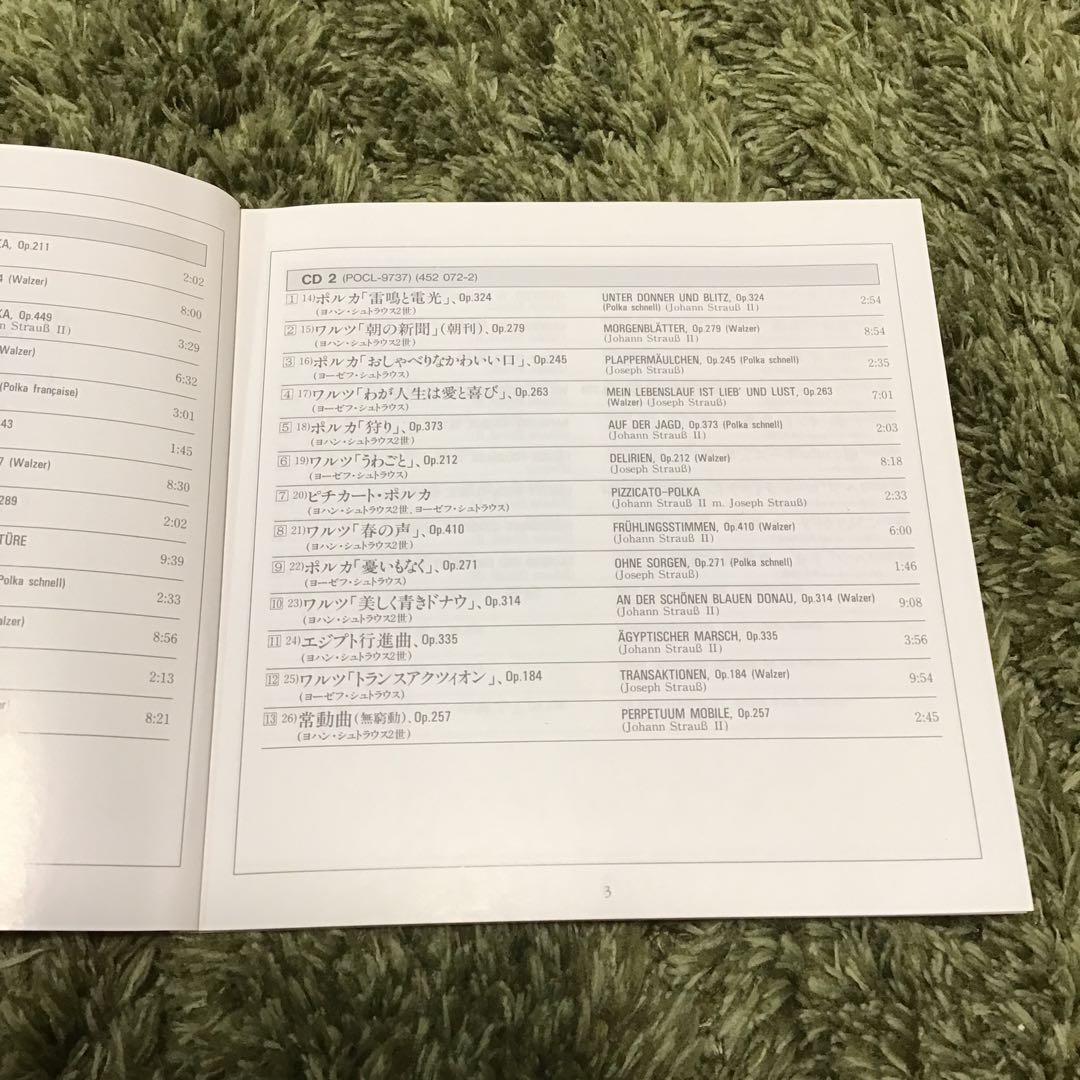 KA, Op.211
2:02
4 (Walzer)
8:00
KA, Op.449
n Strauß II)
3:29
Walzer)
6:32
(Polka française)
3:01
43
1:45
7 (Walzer)
8:30
289
2:02
TÜRE
9:39
Polka schnell)
2:33
alzer)
8:56
2:13
8:21
CD 2 (POCL-9737) (452 072-2)
1 14)ポルカ「雷鳴と電光」、Op.324 UNTER DONNER UND BLITZ, Op.324 2:54
(ヨハン・シュトラウス2世) (Polka schnell) (Johann Strauß II)
2 15)ワルツ「朝の新聞」(朝刊)、Op.279 MORGENBLÄTTER, Op.279 (Walzer) 8:54
(ヨハン・シュトラウス2世) (Johann Strauß II)
3 16)ポルカ「おしゃべりなかわいい口」、Op.245 PLAPPERMÄULCHEN, Op.245 (Polka schnell) 2:35
(ヨーゼフ・シュトラウス) (Joseph Strauß)
4 17)ワルツ「わが人生は愛と喜び」、Op.263 MEIN LEBENSLAUF IST LIEB' UND LUST, Op.263 7:01
(ヨーゼフ・シュトラウス) (Walzer) (Joseph Strauß)
5 18)ポルカ「狩り」、Op.373 AUF DER JAGD, Op.373 (Polka schnell) 2:03
(ヨハン・シュトラウス2世) (Johann Strauß II)
6 19)ワルツ「うわごと」、Op.212 DELIRIEN, Op.212 (Walzer) 8:18
(ヨーゼフ・シュトラウス) (Joseph Strauß)
7 20)ピチカート・ポルカ PIZZICATO-POLKA 2:33
(ヨハン・シュトラウス2世、ヨーゼフ・シュトラウス) (Johann Strauß II m. Joseph Strauß)
8 21)ワルツ「春の声」、Op.410 FRÜHLINGSSTIMMEN, Op.410 (Walzer) 6:00
(ヨハン・シュトラウス2世) (Johann Strauß II)
9 22)ポルカ「憂いもなく」、Op.271 OHNE SORGEN, Op.271 (Polka schnell) 1:46
(ヨーゼフ・シュトラウス) (Joseph Strauß)
10 23)ワルツ「美しく青きドナウ」、Op.314 AN DER SCHÖNEN BLAUEN DONAU, Op.314 (Walzer) 9:08
(ヨハン・シュトラウス2世) (Johann Strauß II)
11 24)エジプト行進曲、Op.335 ÄGYPTISCHER MARSCH, Op.335 3:56
(ヨハン・シュトラウス2世) (Johann Strauß II)
12 25)ワルツ「トランスアクツィオン」、Op.184 TRANSAKTIONEN, Op.184 (Walzer) 9:54
(ヨーゼフ・シュトラウス) (Joseph Strauß)
13 26)常動曲(無窮動)、Op.257 PERPETUUM MOBILE, Op.257 2:45
(ヨハン・シュトラウス2世) (Johann Strauß II)
3